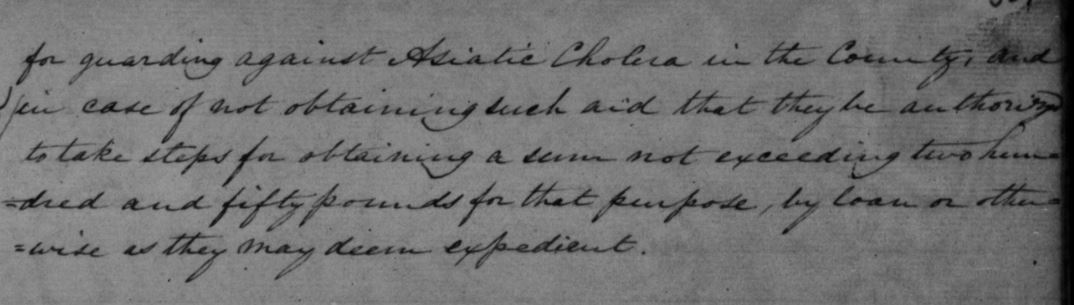 for guarding against Asiatic Cholera in the County, and
in case of not obtaining such aid that they be authorized
to take steps for obtaining a sum not exceeding two hun=
=dred and fifty pounds for that purpose, by loan or other=
=wise as they may deem expedient.